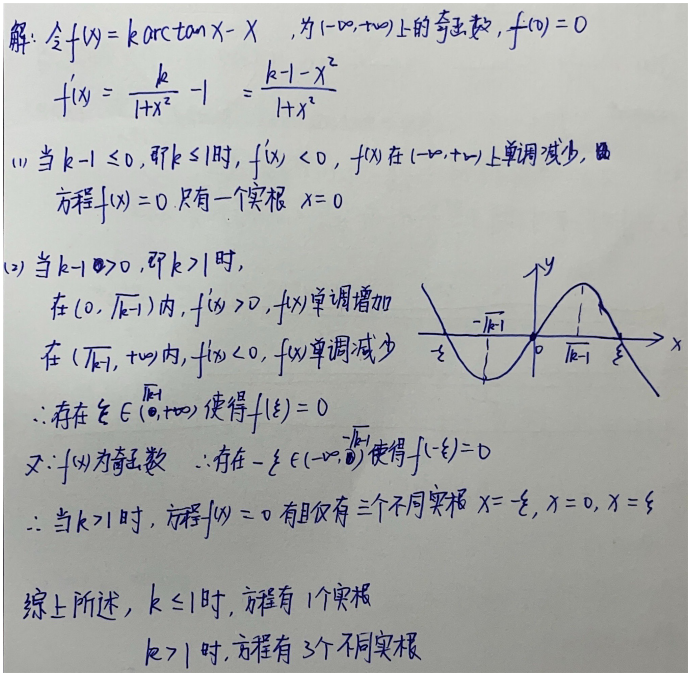 解: 令f(x) = k arctan x - x ,为(-∞,+∞)上的奇函数, f(0) = 0
f'(x) = k/(1+x²) - 1 = (k-1-x²)/(1+x²)
(1) 当 k-1 ≤ 0, 即k ≤ 1时, f'(x) < 0, f(x)在(-∞,+∞)上单调减少,
方程f(x) = 0 只有一个实根 x = 0
(2) 当 k-1 > 0, 即 k > 1 时,
在(0, √k-1)内, f'(x) > 0, f(x)单调增加
在(√k-1, +∞)内, f'(x) < 0, f(x)单调减少
∴存在 ξ ∈ (√k-1, +∞) 使得 f(ξ) = 0
又∵f(x)为奇函数 ∴存在 -ξ ∈ (-∞, -√k-1) 使得 f(-ξ) = 0
∴ 当 k > 1 时, 方程f(x) = 0 有且仅有三个不同实根 x = -ξ, x = 0, x = ξ
y
-√k-1
-ξ
0
√k-1
ξ
x
综上所述, k ≤ 1时, 方程有 1个实根
k > 1 时, 方程有 3个不同实根